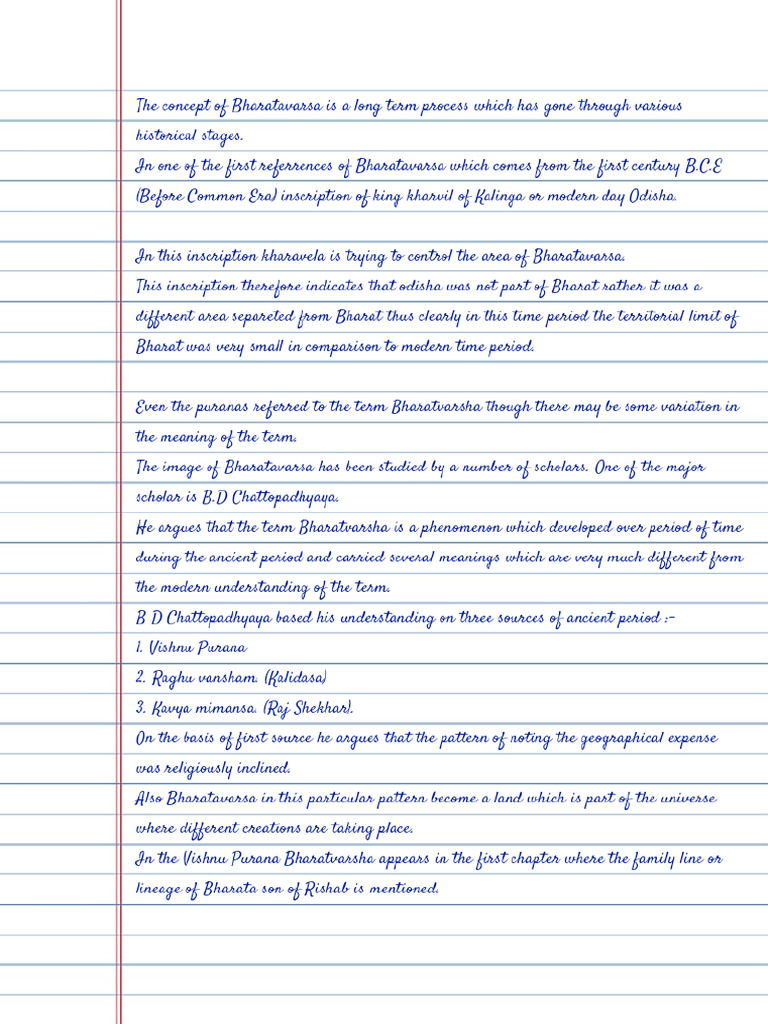 The concept of Bharatavarsa is a long term process which has gone through various
historical stages.
In one of the first referrences of Bharatavarsa which comes from the first century B.C.E
(Before Common Era) inscription of king kharvil of Kalinga or modern day Odisha.
In this inscription kharavela is trying to control the area of Bharatavarsa.
This inscription therefore indicates that odisha was not part of Bharat rather it was a
different area separeted from Bharat thus clearly in this time period the territorial limit of
Bharat was very small in comparison to modern time period.
Even the puranas referred to the term Bharatvarsha though there may be some variation in
the meaning of the term.
The image of Bharatavarsa has been studied by a number of scholars. One of the major
scholar is B.D Chattopadhyaya.
He argues that the term Bharatvarsha is a phenomenon which developed over period of time
during the ancient period and carried several meanings which are very much different from
the modern understanding of the term.
B D Chattopadhyaya based his understanding on three sources of ancient period :-
1. Vishnu Purana
2. Raghu vansham. (Kalidasa)
3. Kavya mimansa. (Raj Shekhar).
On the basis of first source he argues that the pattern of noting the geographical expense
was religiously inclined.
Also Bharatavarsa in this particular pattern become a land which is part of the universe
where different creations are taking place.
In the Vishnu Purana Bharatvarsha appears in the first chapter where the family line or
lineage of Bharata son of Rishab is mentioned.